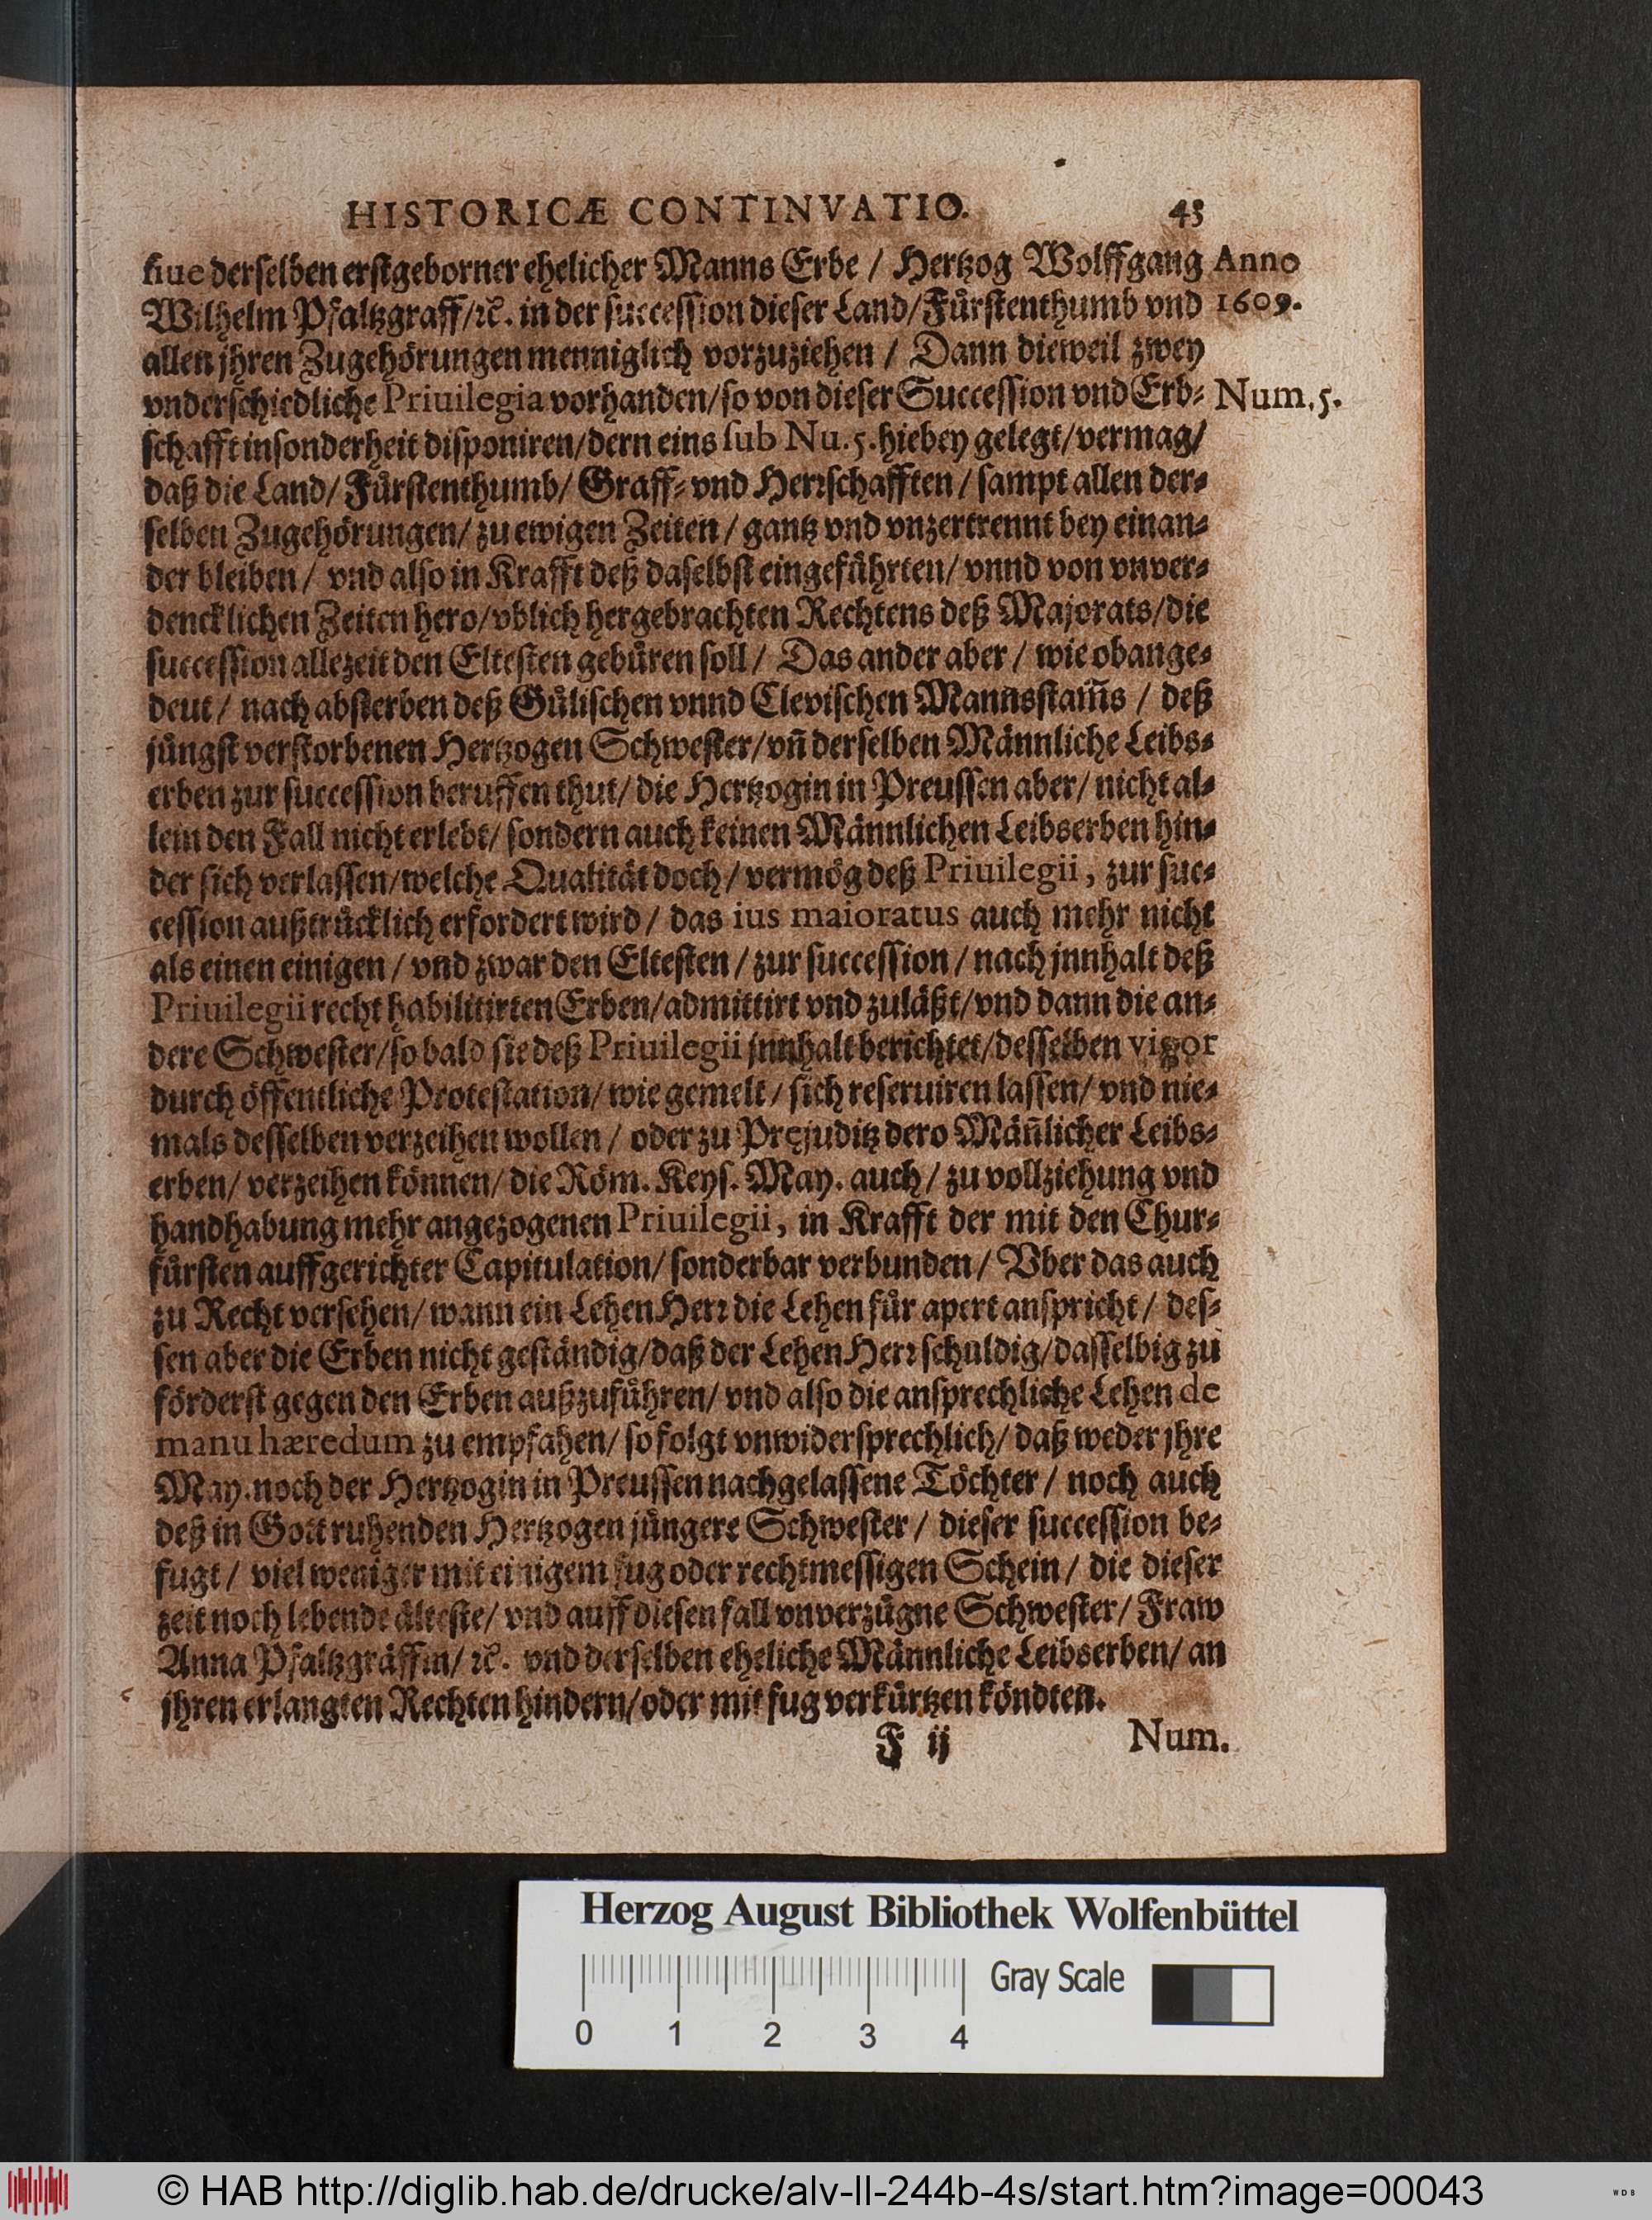 HISTORICÆ CONTINVATIO. 43
siue derselben erstgeborner ehelicher Manns Erbe / Hertzog Wolffgang Anno
Wilhelm Pfaltzgraff/ꝛc. in der succession dieser Land/Fürstenthumb vnd 1609.
allen jhren Zugehörungen menniglich vorzuziehen / Dann dieweil zwey
vnderschiedliche Priuilegia vorhanden/so von dieser Succession vnd Erb⸗ Num. 5.
schafft insonderheit disponiren/dern eins sub Nu. 5. hiebey gelegt/vermag/
daß die Land/Fürstenthumb/ Graff⸗ vnd Herꝛschafften / sampt allen der⸗
selben Zugehörungen/ zu ewigen Zeiten / gantz vnd vnzertrennt bey einan⸗
der bleiben / vnd also in Krafft deß daselbst eingeführten/ vnnd von vnver⸗
dencklichen Zeiten hero/vblich hergebrachten Rechtens deß Majorats/die
succession allezeit den Eltesten gebüren soll / Das ander aber / wie obange⸗
deut / nach absterben deß Gülischen vnnd Clevischen Mannsstam̃s / deß
jüngst verstorbenen Hertzogen Schwester/vñ derselben Männliche Leibs⸗
erben zur succession beruffen thut/ die Hertzogin in Preussen aber/ nicht al⸗
lein den Fall nicht erlebt/ sondern auch keinen Männlichen Leibserben hin⸗
der sich verlassen/welche Qualität doch / vermög deß Priuilegii, zur suc⸗
cession außtrücklich erfordert wird / das ius maioratus auch mehr nicht
als einen einigen / vnd zwar den Eltesten / zur succession / nach jnnhalt deß
Priuilegii recht habilitirten Erben/admittirt vnd zuläßt/vnd dann die an⸗
dere Schwester/so bald sie deß Priuilegii jnnhalt berichtet/desselben vigor
durch öffentliche Protestation/ wie gemelt / sich reseruiren lassen/ vnd nie⸗
mals desselben verzeihen wollen / oder zu Pręjuditz dero Män̄licher Leibs⸗
erben/ verzeihen können/ die Röm. Keys. May. auch / zu vollziehung vnd
handhabung mehr angezogenen Priuilegii, in Krafft der mit den Chur⸗
fürsten auffgerichter Capitulation/ sonderbar verbunden / Vber das auch
zu Recht versehen/ wann ein Lehen Herꝛ die Lehen für apert anspricht / des⸗
sen aber die Erben nicht geständig/daß der Lehen Herꝛ schuldig/dasselbig zu
förderst gegen den Erben außzuführen/ vnd also die ansprechliche Lehen de
manu hæredum zu empfahen/ so folgt vnwidersprechlich/ daß weder jhre
May. noch der Hertzogin in Preussen nachgelassene Töchter / noch auch
deß in Gott ruhenden Hertzogen jüngere Schwester / dieser succession be⸗
fugt / viel weniger mit einigem fug oder rechtmessigen Schein / die dieser
zeit noch lebende älteste/ vnd auff diesen fall vnverzügne Schwester/ Fraw
Anna Pfaltzgräffin/ ꝛc. vnd derselben eheliche Männliche Leibserben/ an
jhren erlangten Rechten hindern/oder mit fug verkürtzen köndten.
F ij Num.
Herzog August Bibliothek Wolfenbüttel
Gray Scale
0 1 2 3 4
© HAB http://diglib.hab.de/drucke/alv-ll-244b-4s/start.htm?image=00043
WDB